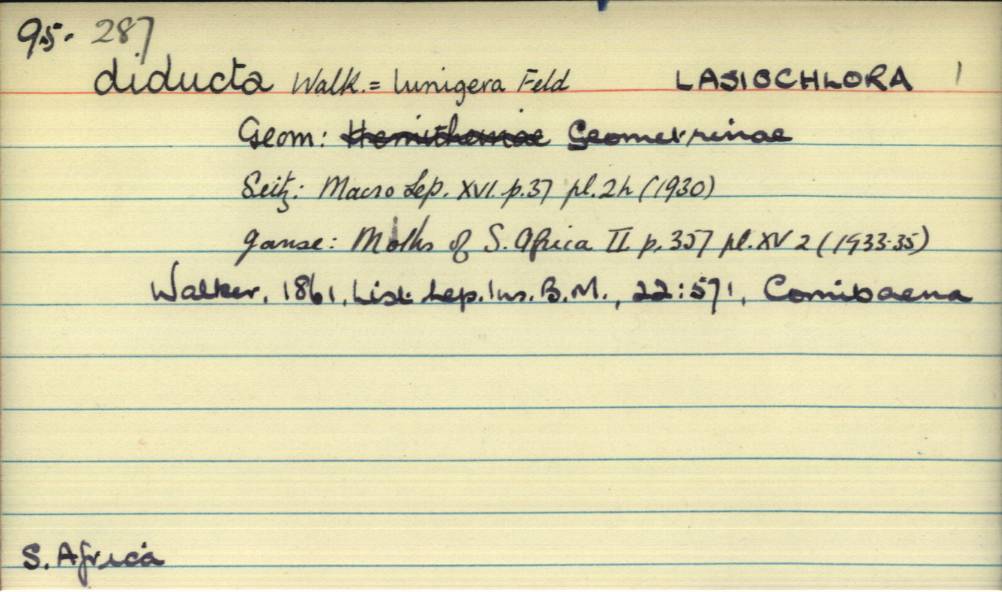 95. 287
diducta Walk. = lunigera Feld LASIOCHLORA 1
Geom: Hemitheinae Geometrinae
Seitz: Macro Lep. XVI. p.37 pl.2h (1930)
Janse: Moths of S. Africa II p. 357 pl. XV 2 (1933-35)
Walker, 1861, List. Lep. Ins. B.M., 22:571, Comibaena
S. Africa